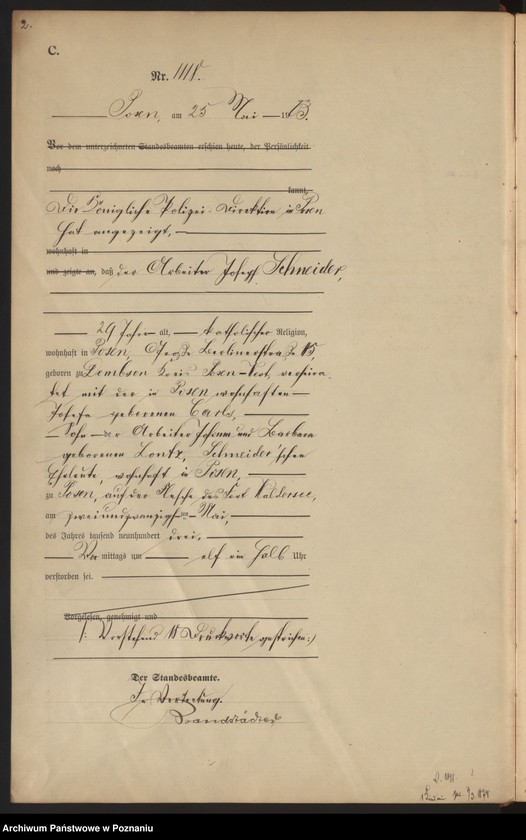 2.
C.
Nr. 1118.
Posen, am 25 Mai 1903.
Vor dem unterzeichneten Standesbeamten erschien heute, der Persönlichkeit
nach
kannt,
Die Königliche Polizei-Direktion in Posen
hat angezeigt,
wohnhaft in
und zeigte an, daß der Arbeiter Josef Schneider,
29 Jahre alt, katholischer Religion,
wohnhaft in Posen, Große Berlinerstraße
geboren zu Dembsen Kreis Posen-West, verheira-
tet mit der in Posen wohnhaften
Josefa geborenen
Sohn der Arbeiter Johann und Barbara
geborenen Lontz, Schneider'schen
Eheleute, wohnhaft in Posen,
zu Posen, auf der des Fort Waldersee,
am zweiundzwanzigsten Mai,
des Jahres tausend neunhundert drei,
Vor mittags um elf ein halb Uhr
verstorben sei.
Vorgelesen, genehmigt und
/: Vorstehend Druckworte gestrichen :/
Der Standesbeamte.
In Vertretung.
Brandstädter
Archiwum Państwowe w Poznaniu